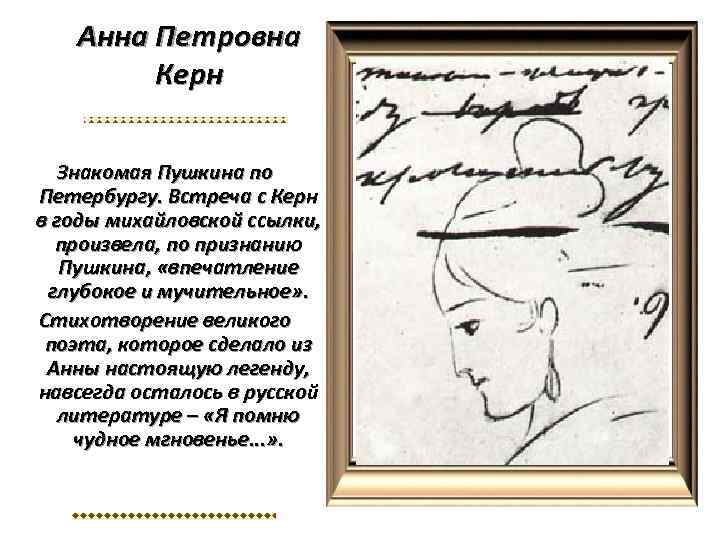 Анна Петровна
Керн
Знакомая Пушкина по
Петербургу. Встреча с Керн
в годы михайловской ссылки,
произвела, по признанию
Пушкина, «впечатление
глубокое и мучительное» .
Стихотворение великого
поэта, которое сделало из
Анны настоящую легенду,
навсегда осталось в русской
литературе – «Я помню
чудное мгновенье...» .